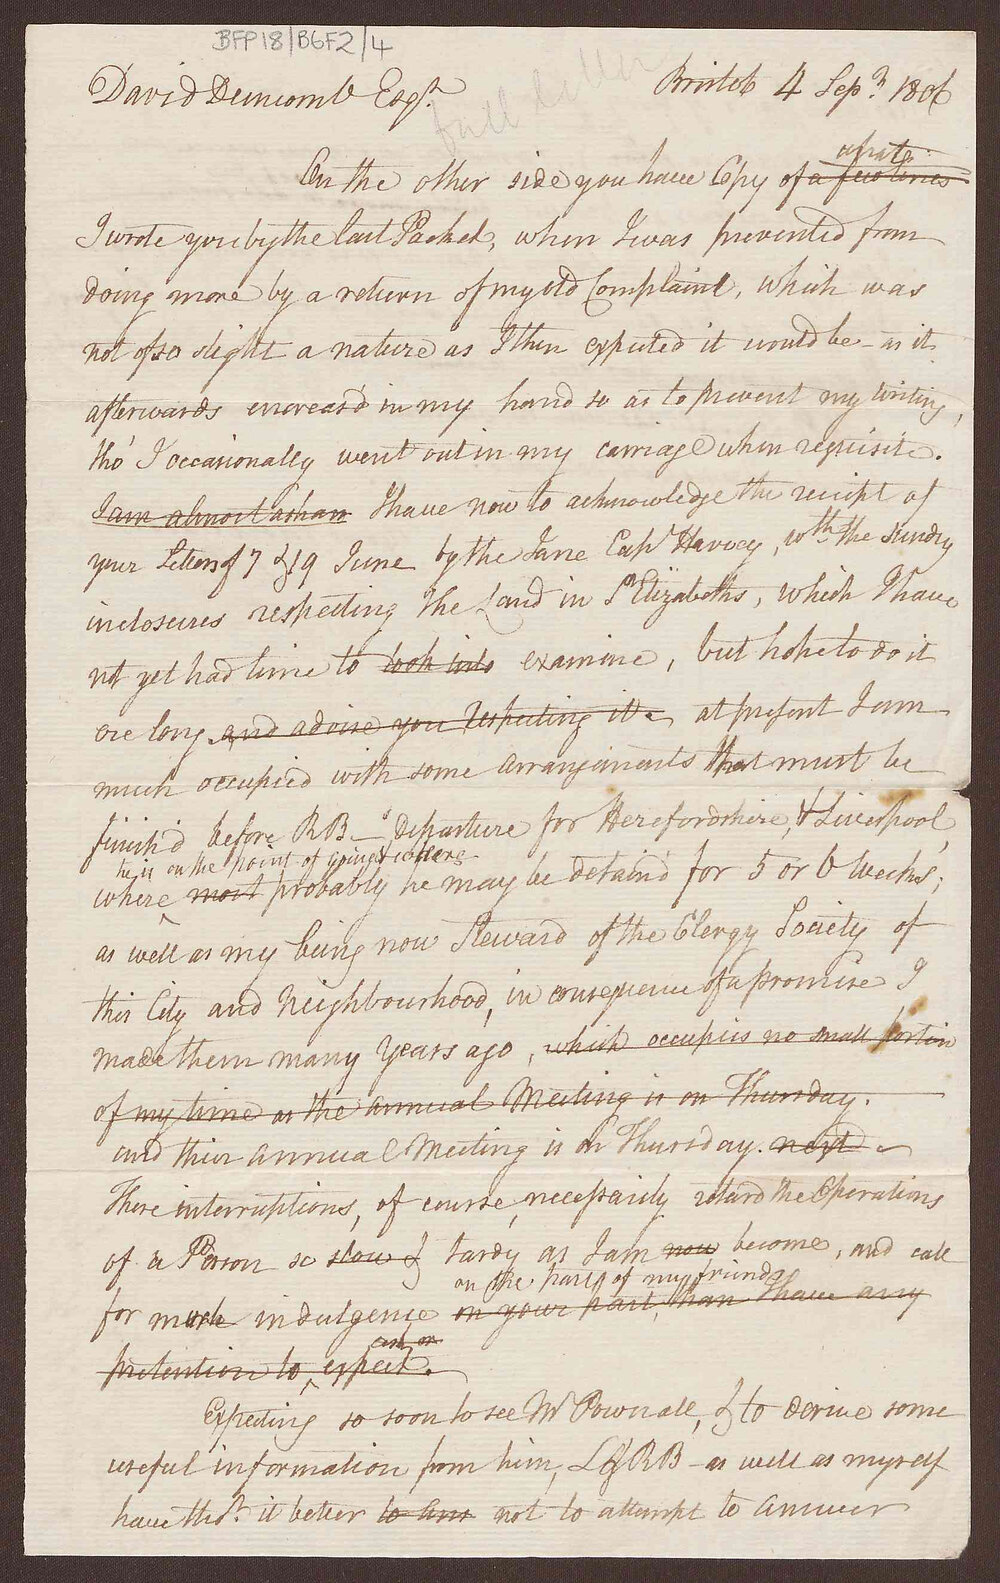 BFP18/B6F2/4
David Duncomb Esqr. Bristol 4 Sepr. 1806
full letter
what
On the other side you have Copy of a few lines
I wrote you by the last Packet, when I was prevented from
doing more by a return of my old Complaint, which was
not of so slight a nature as I then expected it would be - as it
afterwards encreas'd in my hand so as to prevent my writing,
tho' I occasionally went out in my carriage when requisite.
I am almost asham I have now to acknowledge the receipt of
your Letters of 7 & 19 June by the Jane Capt. Harvey, wth. the sundry
inclosures respecting the Land in St Elizabeths, which I have
not yet had time to look into examine, but hope to do it
ere long and advise you respecting it. at present I am
much occupied with some arrangements that must be
finish'd before RB-s departure for Herefordshire, & Liverpool,
he is on the point of going &
where most probably he may be detain'd for 5 or 6 Weeks;
as well as my being now Steward of the Clergy Society of
this City and Neighbourhood, in consequence of a promise I
made them many Years ago, which occupies no small portion
of my time as the annual Meeting is on Thursday.
and their annual Meeting is on Thursday. next
These interruptions, of course, necessarily retard the Operations
of a Person so slow & tardy as I am now become, and call
on the part of my friends
for much indulgence on your part, than I have any
ask or
pretention to expect.
Expecting so soon to see Mr Pownall, & to derive some
useful information from him, L & RB - as well as myself
have thot. it better to ans not to attempt to answer